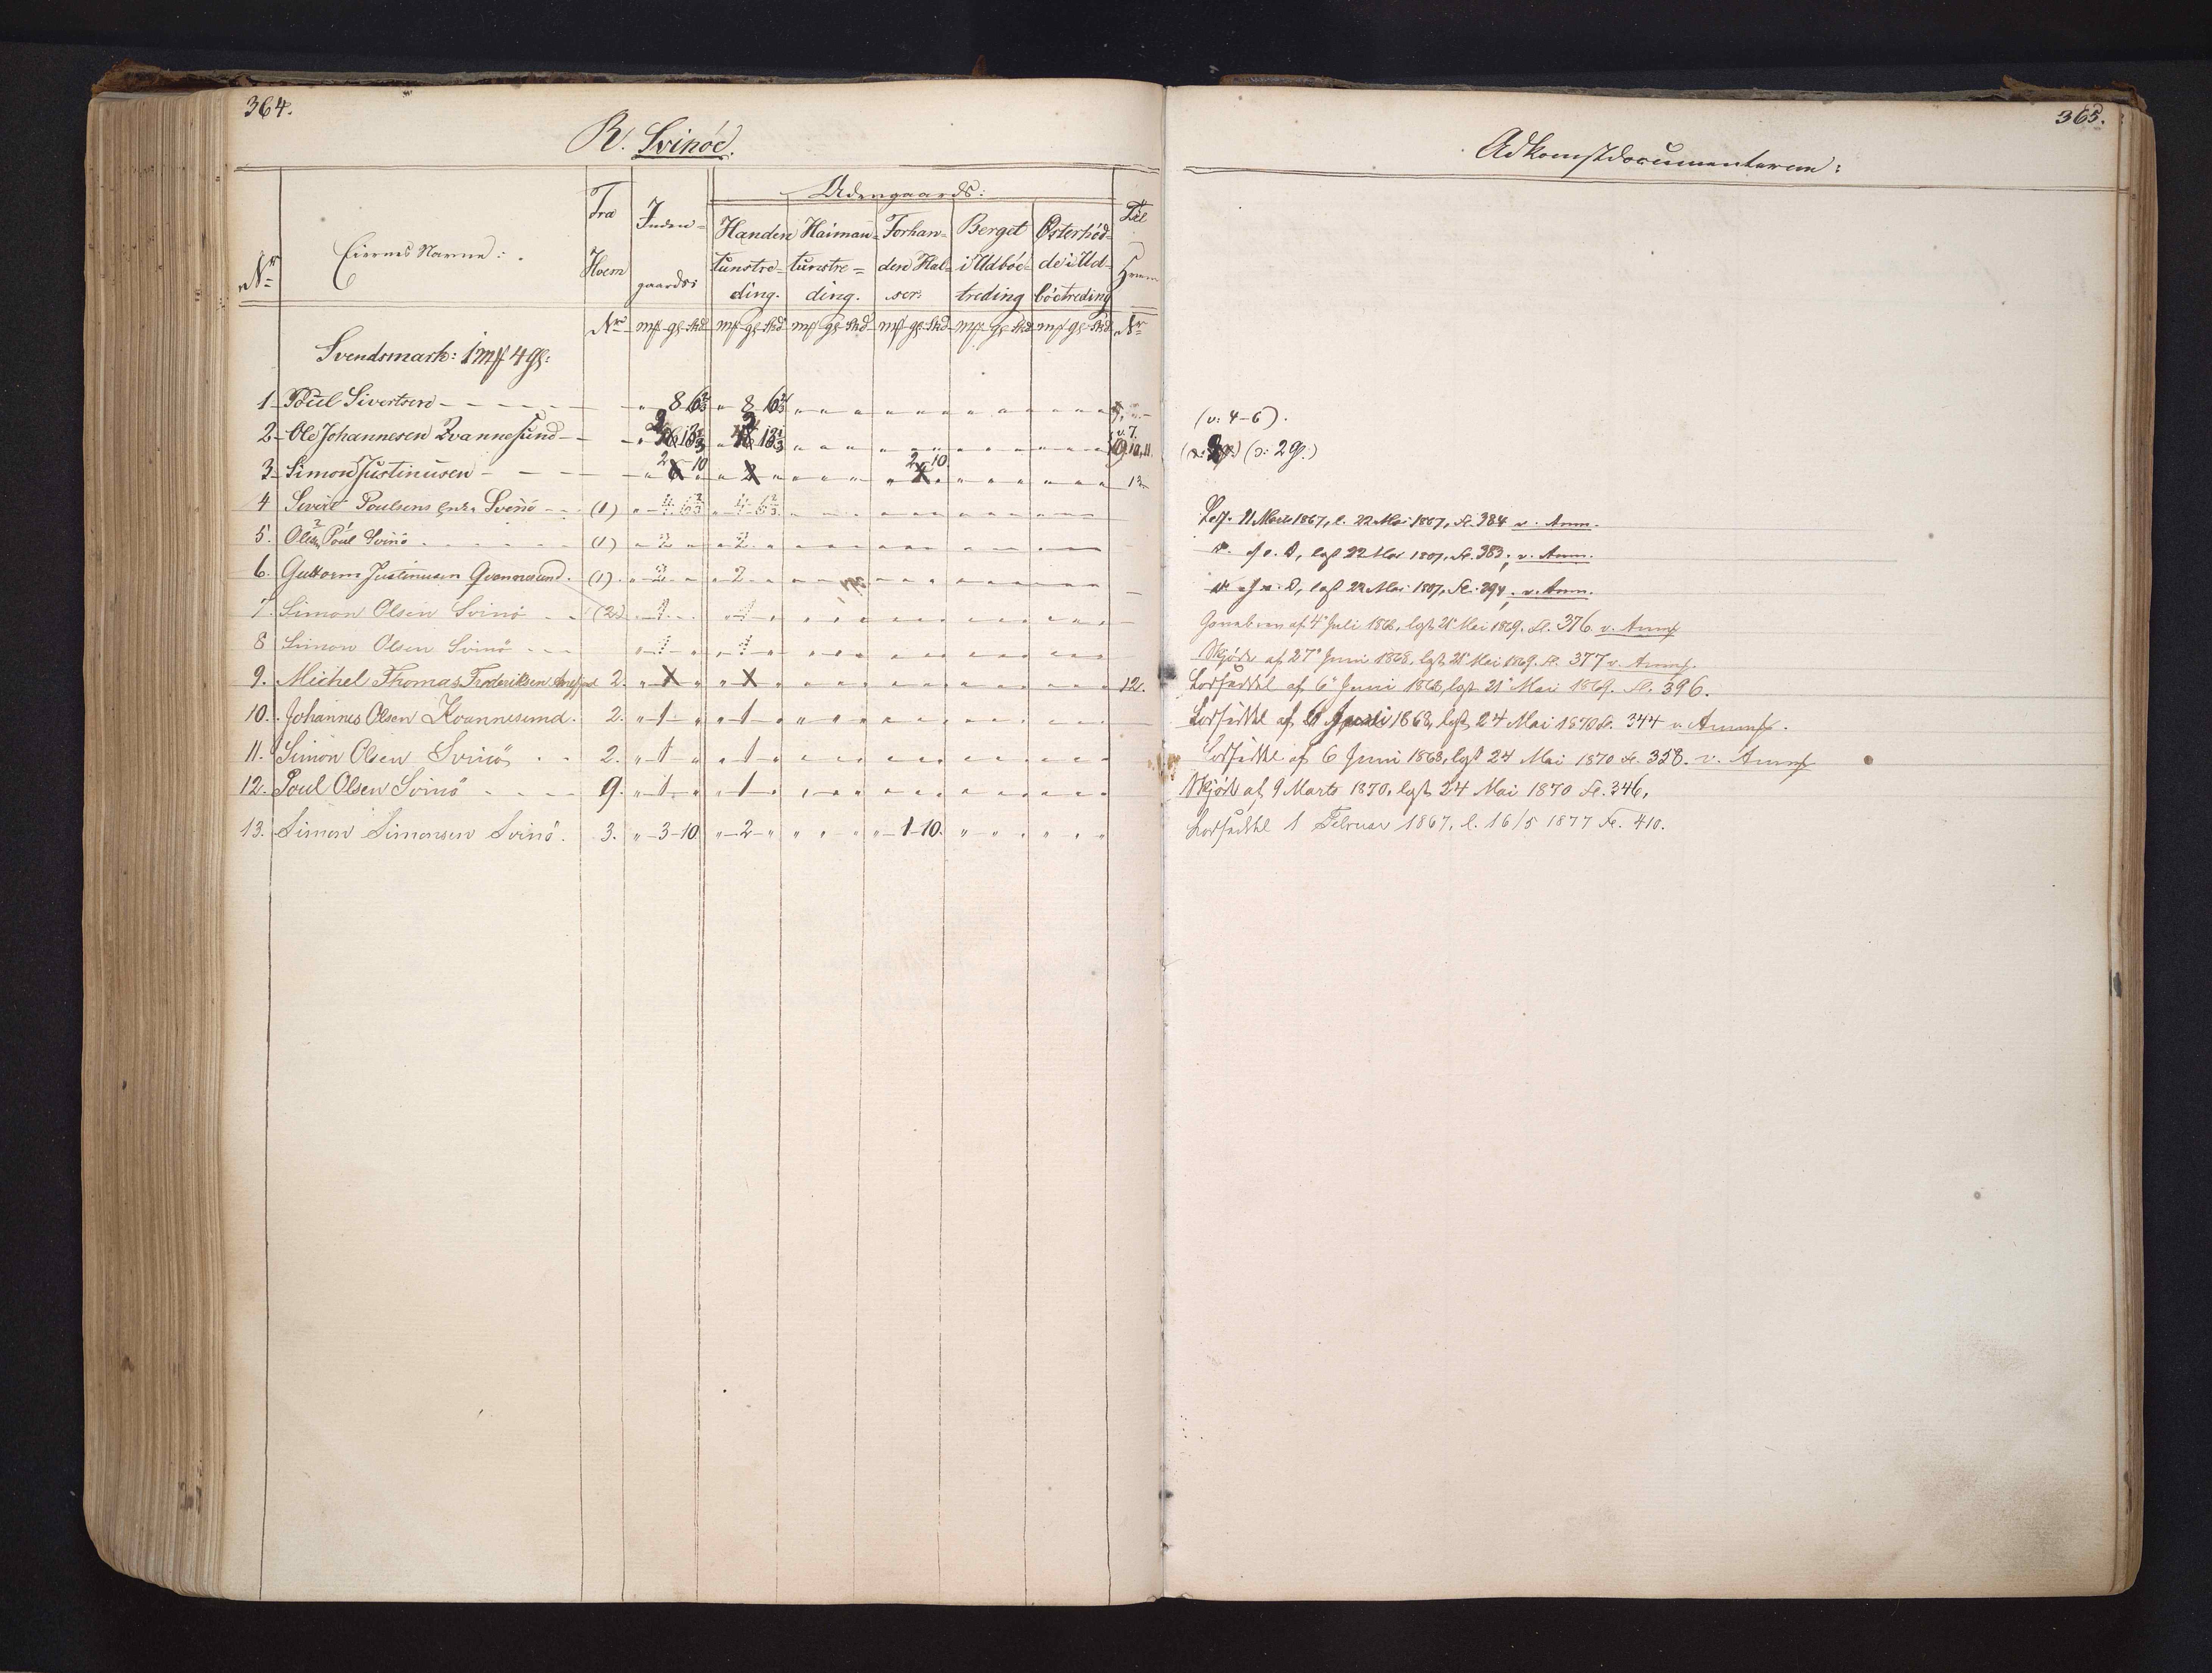 364.
R. Svinöe.
Nr
Eiernes Navne:
Fra Hvem
Indengaards:
Udengaards:
Handentunstreding.
Haimantunstreding.
Forhanden Halser.
Berget i Udböetreding
Österhödde i Udböetreding
Til Hvem
Nr mk gl skd mk gl skd mk gl skd mk gl skd mk gl skd mk gl skd Nr
Svendsmark: 1 mk 4 gl:
1 Poul Sivertsen " 8 6 2/3 " 8 6 2/3
2 Ole Johannesen Qvannesund
3 Simon Justinusen 2 10 2 10 13
4 Sivert Poulsens Svinö (1) " 4 6 2/3 " 4 6 2/3
5. Olsen Poul Svinö (1) " 2 " " 2 "
6. Guttorm Justinusen Qvannesund. (1). " 2 " " 2 "
7. Simon Olsen Svinö (2) " 1 " " 1 "
8 Simon Olsen Svinö " 1 " " 1 "
9. Michel Thomas Frederiksen 2. 12.
10. Johannes Olsen Kvannesund. 2. " 1 " " 1 "
11. Simon Olsen Svinö 2. " 1 " " 1 "
12. Poul Olsen Svinö 9. " 1 " " 1 "
13. Simon Simonsen Svinö. 3. " 3 10 " 2 " " " " " 1 10. " " " " " "
365.
Adkomstdocumenterne:
(v: 4-6).
(v: 2 gl.)
11 Marts 1867, l. 22 Mai 1867, Fl. 384 v. Anm.
22 Mai 1867, Fl. 383, v. Anm.
22 Mai 1867, Fl. 394, v. Anm.
Gavebrev af 4 Juli 1862, lgst 21 Mai 1869. Fl. 376. v. Anm
Skjöde af 27 Juni 1868, lgst 21 Mai 1869. Fl. 377 v. Anm.
Lodseddel af 6 Juni 1868, lgst 21 Mai 1869. Fl. 396.
Lodseddel af 6 Juni 1868, lgst 24 Mai 1870 Fl. 344 v. Anm.
Lodseddel af 6 Juni 1868, lgst 24 Mai 1870 Fl. 358. v. Anm
Skjöde af 9 Marts 1870, lgst 24 Mai 1870 Fl. 346.
Lodseddel 1 Februar 1867, l. 16/5 1877 Fl. 410.